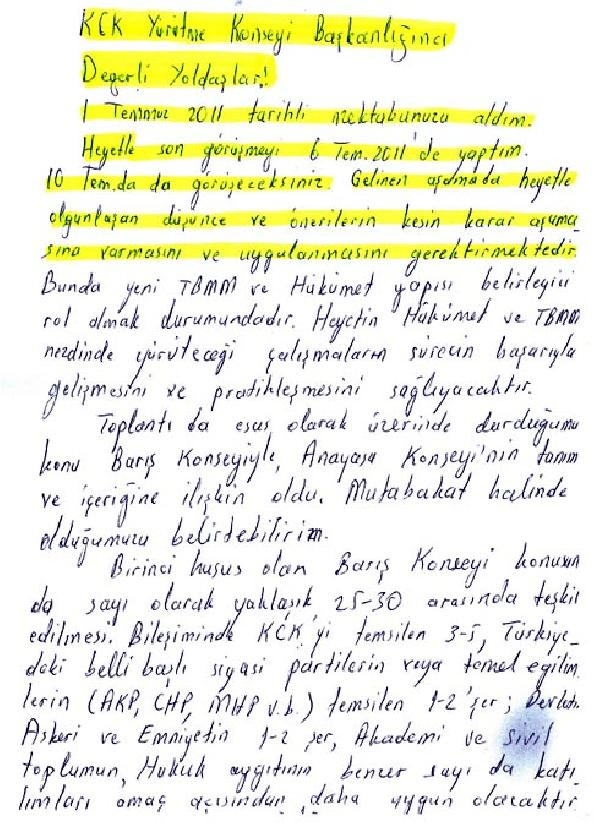 KCK Yürütme Konseyi Başkanlığına
Değerli Yoldaşlar!
1 Temmuz 2011 tarihli mektubunuzu aldım.
Heyetle son görüşmeyi 6 Tem. 2011'de yaptım.
10 Tem.da da görüşeceksiniz. Gelinen aşamada heyetle
olgunlaşan düşünce ve önerilerin kesin karar aşama
sına varmasını ve uygulanmasını gerektirmektedir.
Bunda yeni TBMM ve Hükümet yapısı belirleyici
rol olmak durumundadır. Heyetin Hükümet ve TBMM
nezdinde yürüteceği çalışmaların sürecin başarıyla
gelişmesini ve pratikleşmesini sağlıyacaktır.
Toplantı da esas olarak üzerinde durduğumu
konu Barış Konseyiyle, Anayasa Konseyi'nin tanım
ve içeriğine ilişkin oldu. Mutabakat halinde
olduğumuzu belirtebilirim.
Birinci husus olan Barış Konseyi konusun
da sayı olarak yaklaşık 25-30 arasında teşkil
edilmesi. Bileşiminde KCK'yi temsilen 3-5, Türkiye_
deki belli başlı siyasi partilerin veya temel eğilim
lerin (AKP, CHP, MHP v.b.) temsilen 1-2'şer; Devletin
Askeri ve Emniyetin 1-2 şer, Akademi ve sivil
toplumun, Hukuk aygıtının benzer sayı da katı
lımları amaç açısından daha uygun olacaktır.